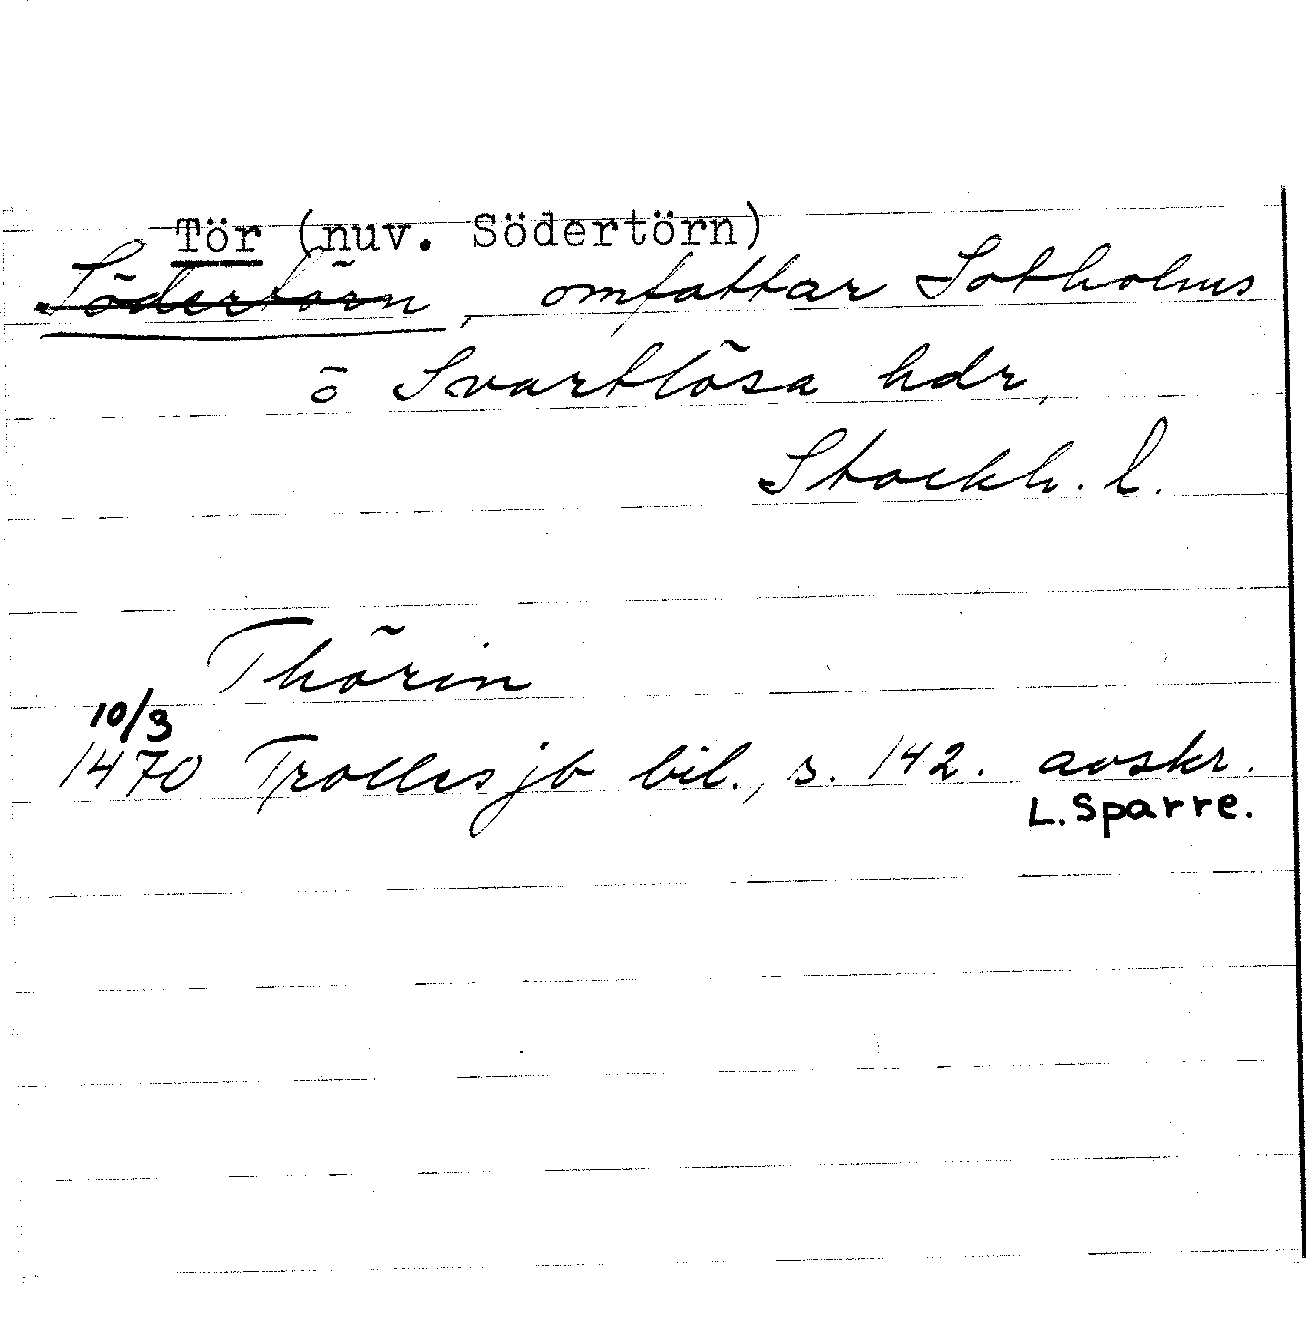 Tör (nuv. Södertörn)
Södertörn, omfattar Sotholms
o Svartlösa hdr,
Stockh. l.
Thörin
10/3
1470 Trolles jb bil., s. 142. avskr.
L. Sparre.